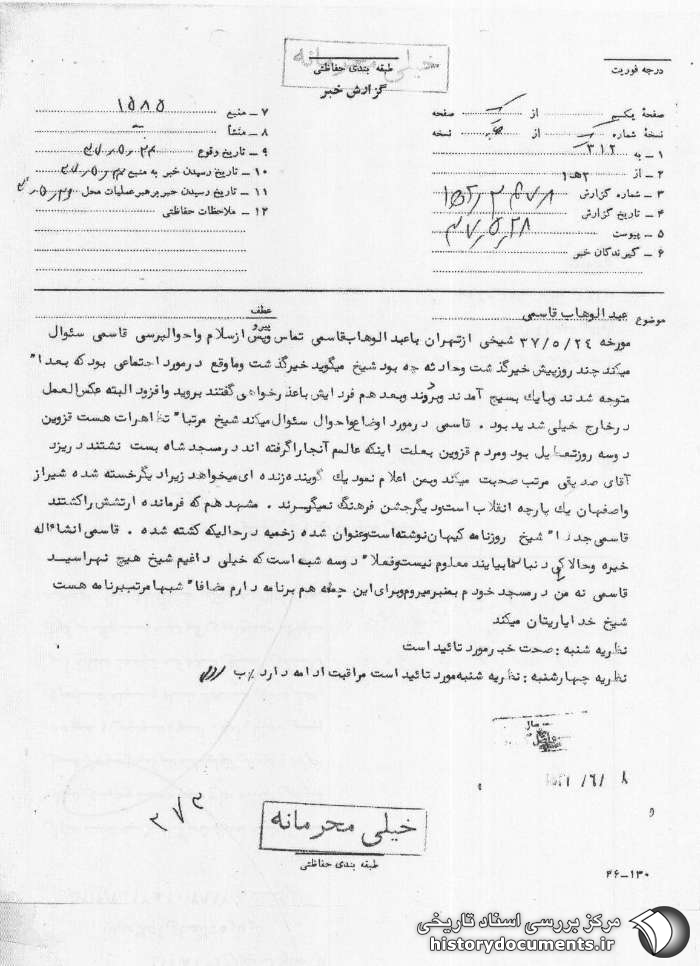 خیلی محرمانه
طبقه بندی حفاظتی
گزارش خبر
درجه فوریت
صفحهٔ یکم از یک صفحه
نسخهٔ شماره از نسخه
۱ ـ به ۳۱۲
۲ ـ از ۱ه۲
۳ ـ شماره گزارش
۴ ـ تاریخ گزارش ۳۷٫۵٫۲۸
۵ ـ پیوست
۶ ـ گیرندگان خبر
۷ ـ منبع ۱۵۸۵
۸ ـ منشأ
۹ ـ تاریخ وقوع ۳۷٫۵٫۲۴
۱۰ ـ تاریخ رسیدن خبر به منبع
۱۱ ـ تاریخ رسیدن خبر برهبر عملیات محل
۱۲ ـ ملاحظات حفاظتی
موضوع عبدالوهاب قاسمی
عطف
پیرو
مورخه ۳۷/۵/۲۴ شیخی ازتهران باعبدالوهاب‌قاسمی تماس وپس ازسلام واحوالپرسی قاسمی سئوال
میکند چند روزپیش خبرگذشت وحادثه چه بود شیخ میگوید خیرگذشت وماوقع درمورد اجتماعی بود که بعدا"
متوجه شدند وبایك بسیج آمدند وبردند وبعدهم فردایش باعذرخواهی گفتند بروید وافزود البته عکس‌العمل
درخارج خیلی شدید بود . قاسمی درمورد اوضاع واحوال سئوال میکند شیخ مرتبا" تظاهرات هست قزوین
دوسه روزتعطیل بود ومردم قزوین بعلت اینکه عالم آنجاراگرفته اند درمسجد شاه بست نشتند دریزد
آقای صدیقی مرتب صحبت میکند وبمن اعلام نمود یك گوینده زنده ای میخواهد زیرا دیگرخسته شده شیراز
واصفهان یك پارچه انقلاب است ودیگرجشن فرهنگ نمیگیرند . مشهد هم که فرمانده ارتشش راکشتند
قاسمی جدا" شیخ روزنامه کیهان نوشته است وعنوان شده زخمیه درحالیکه کشته شده . قاسمی انشاءاله
خیره وحالا کی دنبا شمابیایند معلوم نیست وفعلا" دوسه شب است که خیلی داغیم شیخ هیچ نهراسید
قاسمی نه من درمسجد خودم بمنبرمیروم وبرای این جمعه هم برنامه دارم مضافا" شبها مرتب برنامه هست
شیخ خدا یاریتان میکند
نظریه شنبه : صحت خبر مورد تائید است
نظریه چهارشنبه : نظریه شنبه مورد تائید است مراقبت ادامه دارد
۸ /۶/
۳۷۳
خیلی محرمانه
طبقه بندی حفاظتی
۴۶-۱۳۰
مرکز بررسی اسناد تاریخی
historydocuments.ir